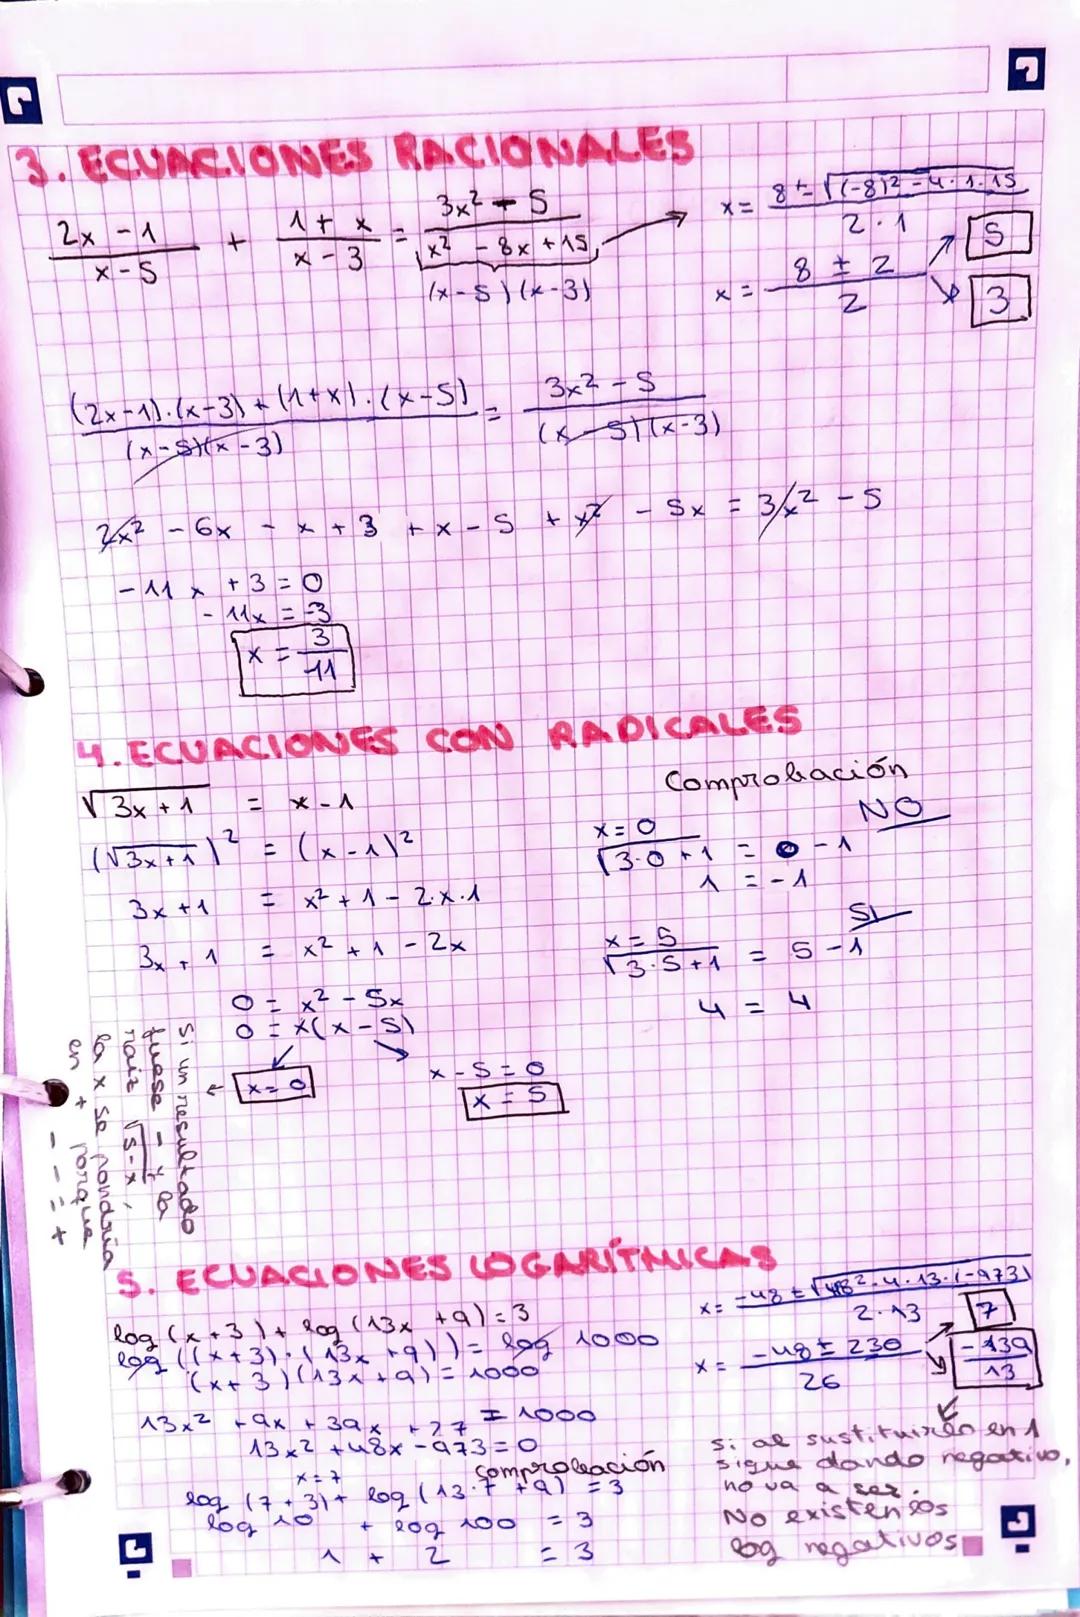 3. ECUACIONES RACIONALES
2x - 1 / x - 5 + 1 + x / x - 3 = 3x² - 5 / x² - 8x + 15
(x-5)(x-3)
x = 8 ± √(-8)² - 4·1·15 / 2·1
x = 8 ± 2 / 2
5
3
(2x-1)·(x-3) + (1+x)·(x-5) / (x-5)(x-3) = 3x² - 5 / (x-5)(x-3)
2x² - 6x - x + 3 + x - 5 + x² - 5x = 3x² - 5
-11x + 3 = 0
-11x = -3
x = 3 / -11
4. ECUACIONES CON RADICALES
√3x + 1 = x - 1
(√3x+1)² = (x-1)²
3x+1 = x² + 1 - 2·x·1
3x + 1 = x² + 1 - 2x
0 = x² - 5x
0 = x(x-5)
x = 0
x - 5 = 0
x = 5
Comprobación
x = 0
NO
√3·0 + 1 = 0 - 1
1 = -1
x = 5
SI
√3·5+1 = 5 - 1
4 = 4
Si un resultado
fuese - y la
raiz √5-x,
la x se pondría
en + porque
- - = +
5. ECUACIONES LOGARÍTMICAS
log (x+3) + log (13x + 9) = 3
log ((x+3)·(13x+9)) = log 1000
(x+3)(13x+9) = 1000
13x² + 9x + 39x + 27 = 1000
13x² + 48x - 973 = 0
x = -48 ± √48² - 4·13·(-973) / 2·13
x = -48 ± 230 / 26
7
-139 / 13
comprobación
x = 7
log (7+3) + log (13·7 + 9) = 3
log 10 + log 100 = 3
1 + 2 = 3
si al sustituirlo en 1
sigue dando negativo,
no va a ser.
No existen los
log negativos